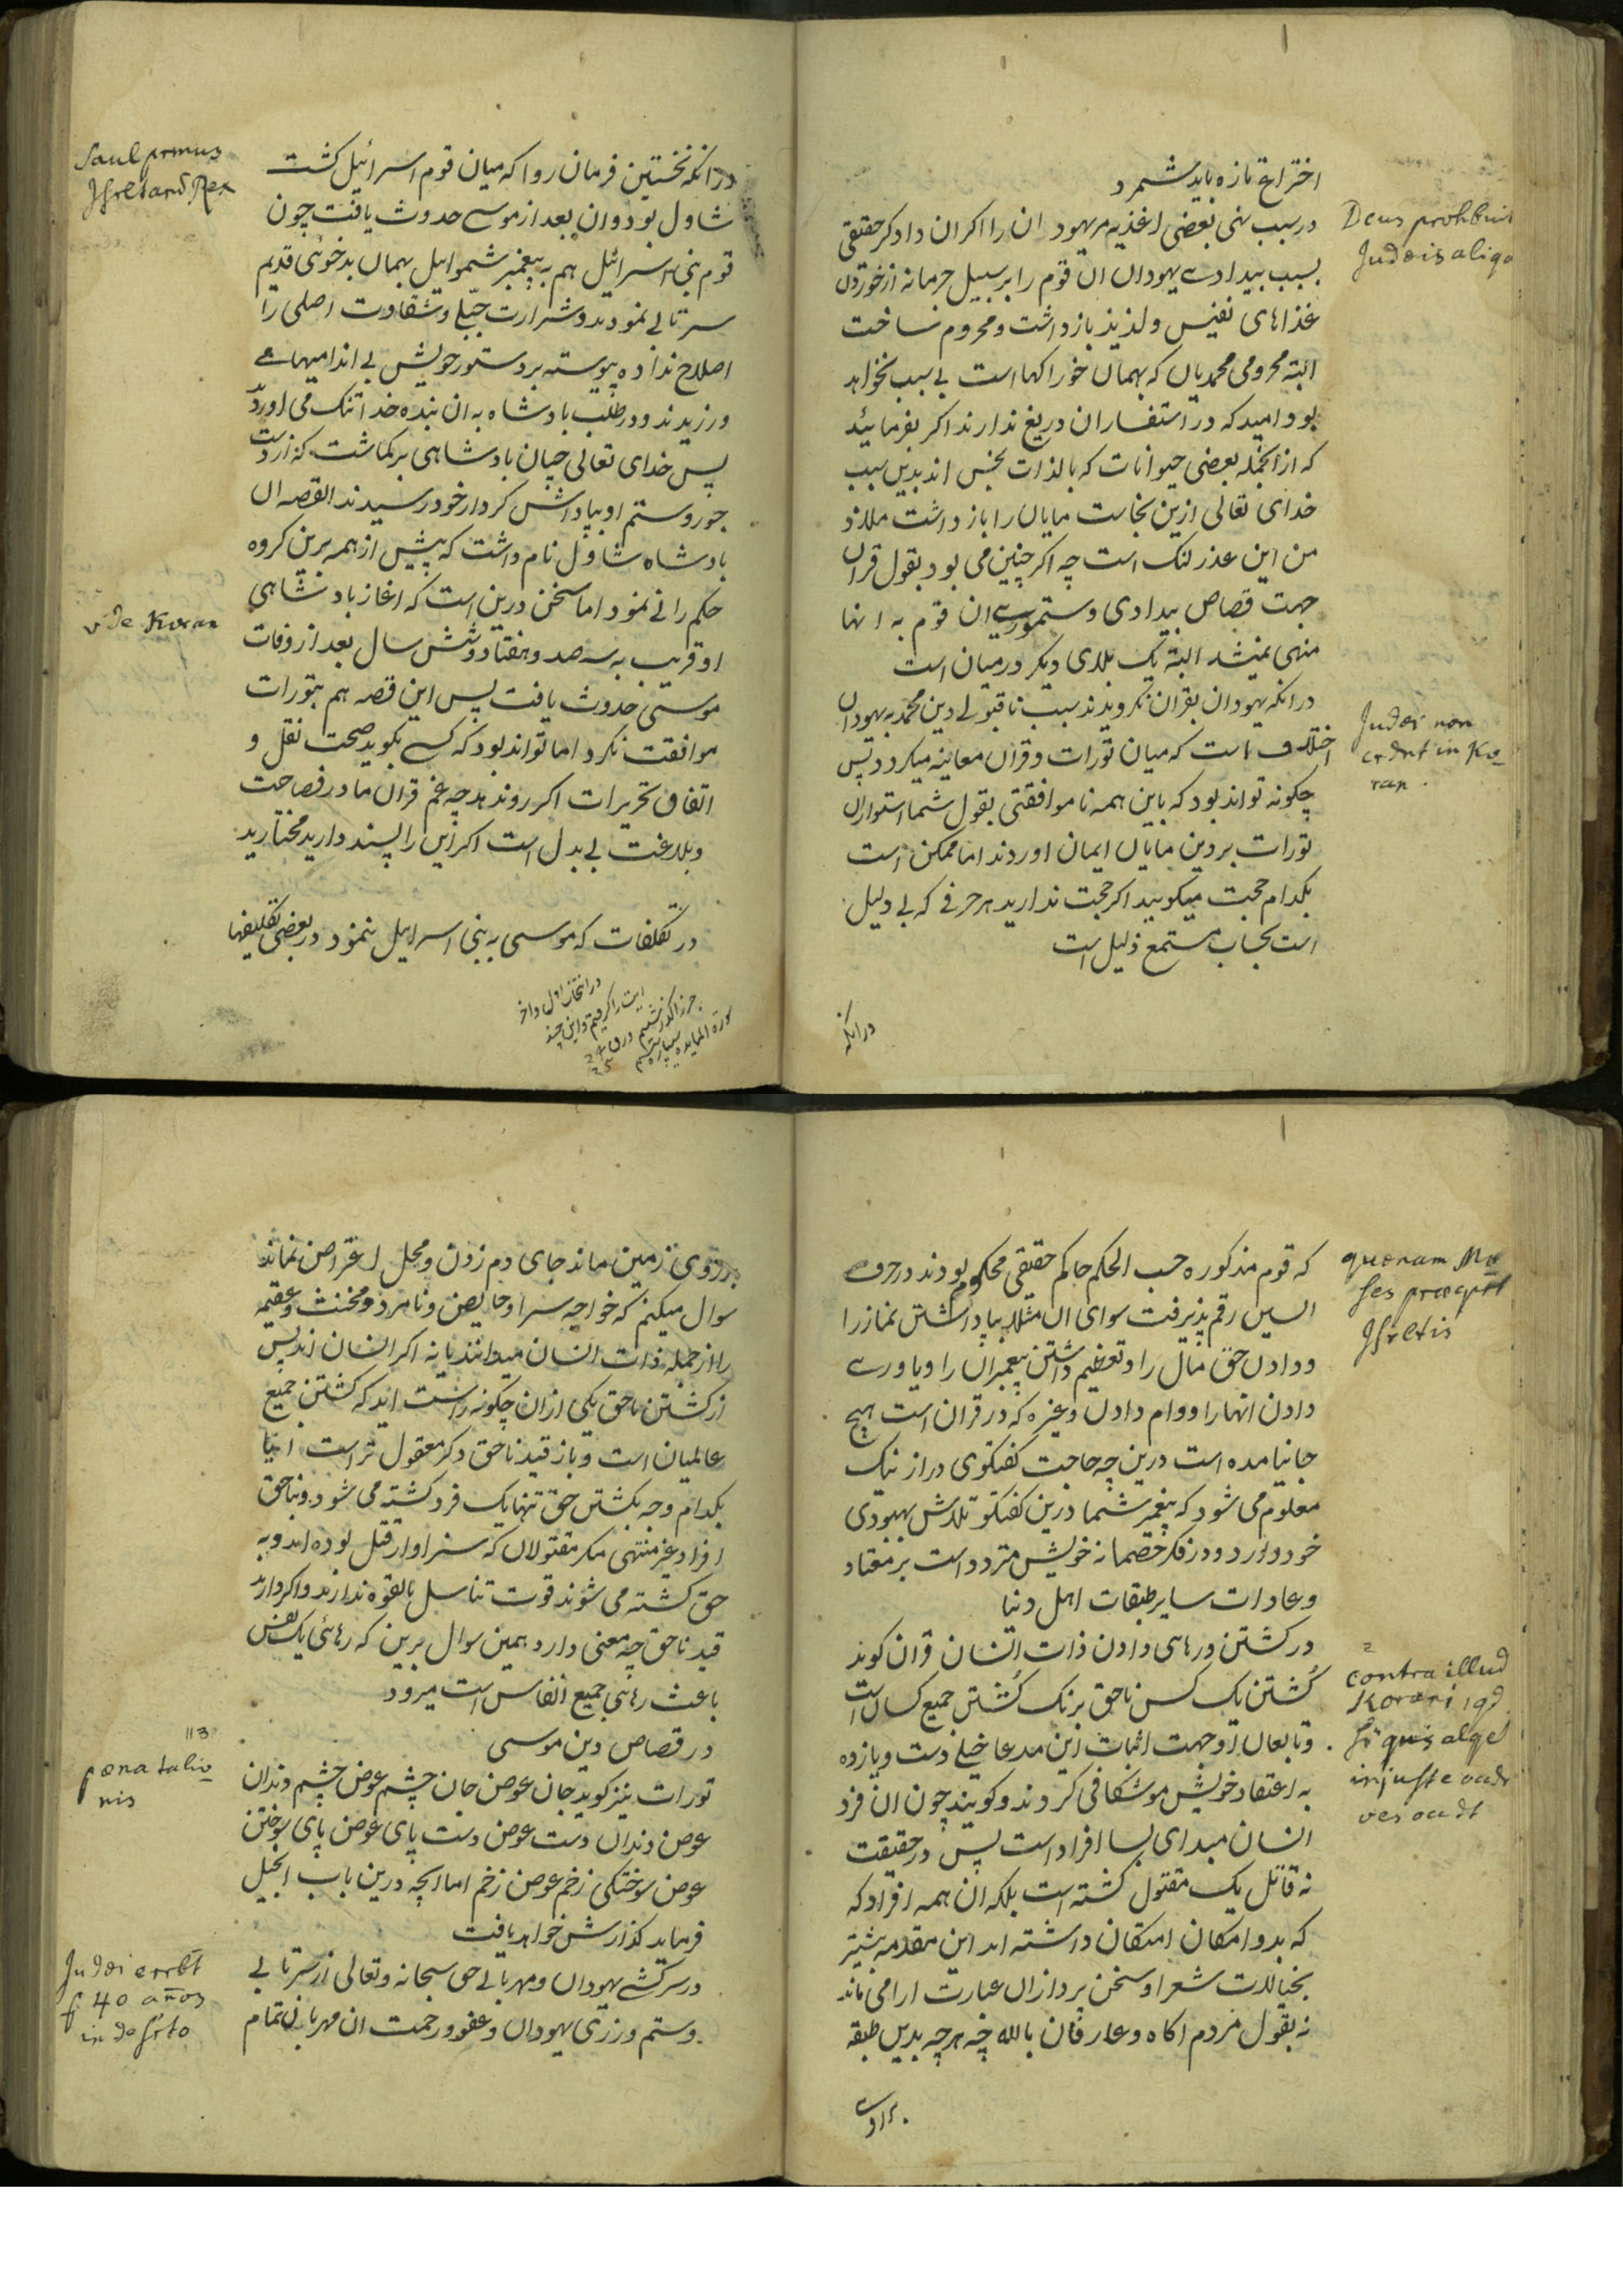 اختراع تازه باید شمرد
در سبب نهی بعضی اغذیه مر یهودان را اکران دادکر حقیقی
Deus prohibuit
Judeis aliqa
بسبب بیدادے یهودان ان قوم را بر سبیل جرمانه از خوردن
غذاهای نفیس و لذیذ بازداشت و محروم ساخت
البته محرومی محمدیان که بهمان خوراکها است بی سبب نخواهد
بود امید که در استفسار ان دریغ ندارند اکر بفرمائید
که از انجمله بعضی حیوانات که بالذات نجس اند بدین سبب
خدای تعالی ازین نجاست مایان را باز داشت ملاذ
من این عذر لنک است چه اکر چنین می بود بقول قران
جهت قصاص بیدادی و ستمورے ان قوم به انها
منهی نمیشد البته یک بلای دیکر درمیان است
در انکه یهودان بقران نکرویدند سبب ناقبولے دین محمد به یهودان
Judæi non
crednt in Ko
ran.
اختلاف است که میان تورات و قران معاینه میکردد پس
چکونه تواند بود که باین همه ناموافقتی بقول شما استواران
تورات بر دین مایان ایمان اوردند اما ممکن است
بکدام حجت میکویید اکر حجت ندارید هر حرفے که بی دلیل
است بحساب مستمع ذلیل است
در انکه
در انکه نخستین فرمان روا که میان قوم اسرائیل کشت
Saul primus
Isrelitarū Rex
شاول بود و ان بعد از موسے حدوث یافت چون
قوم بنی اسرائیل هم به پیغمبر شموایل بهمان بدخوئی قدیم
سرتابے نمودند و شرارت جبلے و شقاوت اصلی را
اصلاح نداده پیوسته بر دستور خویش بی اندامیهاے
ورزیدند و در طلب بادشاه به ان بنده خدا تنک می اورد
پس خدای تعالی چنان بادشاهی برکماشت که از دست
جور و ستم او بپاداش کردار خود رسیدند القصه ان
بادشاه شاول نام داشت که پیش از همه برین کروه
حکم رانے نمود اما سخن درین است که اغاز بادشاهی
vide Koran
او قریب به سه صد و هفتاد و شش سال بعد از وفات
موسی حدوث یافت پس این قصه هم بتورات
موافقت نکرد اما تواند بود که کسے بکوید صحت نقل و
اتفاق تحریرات اکر روند هد چه غم قران ما در فصاحت
و بلاغت بی بدل است اکر این را پسند دارید مختارید
در تکلفات که موسی به بنی اسراییل نمود در بعضی تکلیفها
در انتخاب اول و اخر
ایت را کرفتیم و این چند
سورة المایده سیپاره
که قوم مذکوره حسب الحکم حاکم حقیقی محکوم بودند در حرف
quænam Mo
ses præcepit
Isreltis
السین رقم پذیرفت سوای ان مثلا بپا داشتن نماز را
و دادن حق مال را و تعظیم داشتن پیغمبران را و یاورے
دادن انها را و وام دادن وغیره که در قران است هیچ
جا نیامده است درین چه حاجت کفتکوی دراز نیک
معلوم می شود که پیغمبر شما درین کفتکو تلاش بهبودی
خود دارد و در فکر خصمانه خویش متردد است بر معتاد
و عادات سایر طبقات اهل دنیا
در کشتن و رهاهی دادن ذات انسان قران کوید
2
contra illud
Korani, qd
si quis alqe
injuste occdt
oēs occdt
کُشتن یک کس ناحق برنک کُشتن جمیع کسان است
و تابعان او جهت اثبات این مدعا خیلے دست و پا زده
به اعتقاد خویش موشکافی کردند و کویند چون ان فرد
انسان مبدای بسا افراد است پس در حقیقت
نه قاتل یک مقتول کشته است بلکه ان همه افراد که
که بدو امکان امتکان داشته اند این مقدمه بیشتر
بخیالات شعرا و سخن پردازان عبارت ارا می ماند
نه بقول مردم اکاه و عارفان بالله چه هرچه بدین طبقه
بر روے
بر روی زمین ماند جای دم زدن و محل اعتراض نماند
سوال میکنم که خواجه سرا و حایض و نامرد و مخنث و عقیمه
را از جمله ذات انسان میدانند یا نه اکر انسان اند پس
از کشتن ناحق یکی از ان چکونه راست اید که کشتن جمیع
عالمیان است و باز قید ناحق دکر معقول تر است ایا
بکدام وجه بکشتن حق تنها یک فرد کشته می شود و بناحق
افراد غیر منتهی مکر مقتولان که سزاوار قتل بوده اند و به
حق کشته می شوند قوت تناسل بالقوه ندارند و اکر دارند
قید ناحق چه معنی دارد همین سوال برین که رهائی یک نفس
باعث رهاهی جمیع انفاس است میرود
در قصاص دین موسی
113
pœna talio
nis
تورات نیز کوید جان عوض جان چشم عوض چشم دندان
عوض دندان دست عوض دست پای عوض پای سوختن
عوض سوختکی زخم عوض زخم اما انچه درین باب انجیل
فرماید کذارش خواهد یافت
در سرکشے یهودان و مهربانے حق سبحانه و تعالی از سرتابے
Judæi errāt
p 40 años
in desrto
و ستم ورزی یهودان و عفو و رحمت ان مهربان تمام